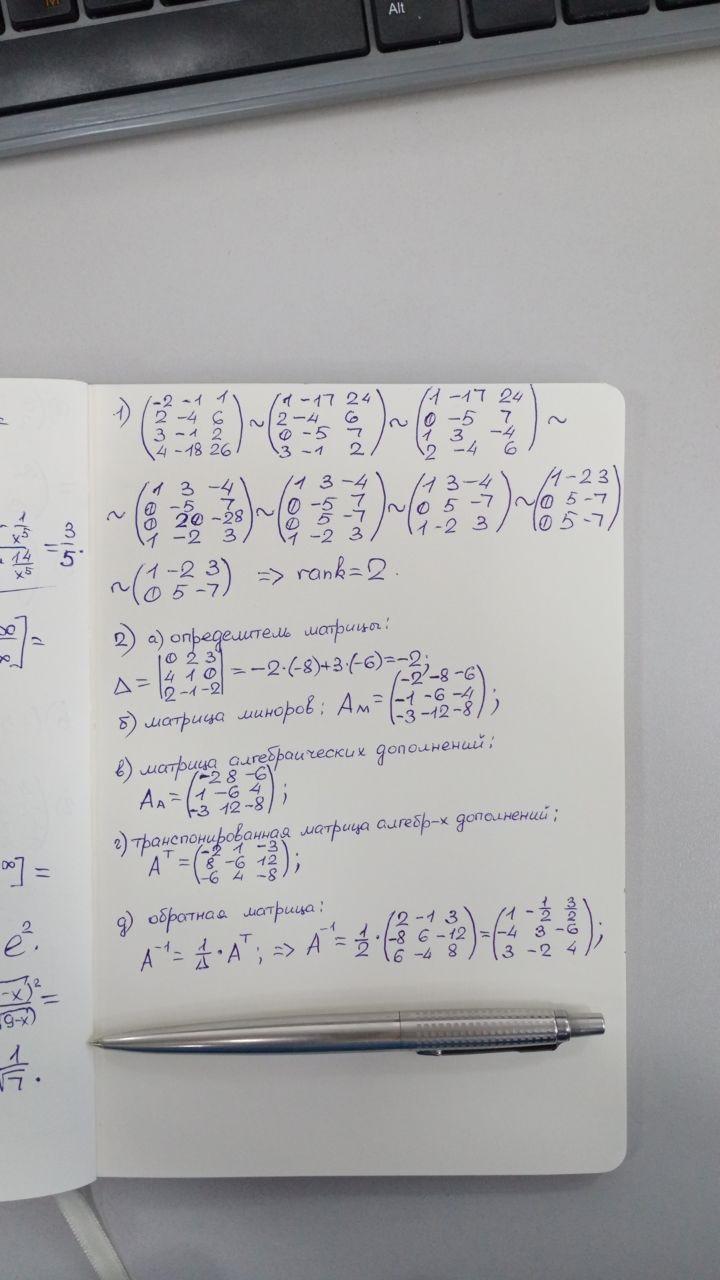 M
Alt
1) (-2 -1 1; 2 -4 6; 3 -1 2; 4 -18 26) ~ (1 -17 24; 2 -4 6; 0 -5 7; 3 -1 2) ~ (1 -17 24; 0 -5 7; 1 3 -4; 2 -4 6) ~
~ (1 3 -4; 0 -5 7; 0 20 -28; 1 -2 3) ~ (1 3 -4; 0 -5 7; 0 5 -7; 1 -2 3) ~ (1 3 -4; 0 5 -7; 1 -2 3) ~ (1 -2 3; 0 5 -7; 0 5 -7)
~ (1 -2 3; 0 5 -7) => rank = 2.
2) а) определитель матрицы:
Δ = |0 2 3; 4 1 0; 2 -1 -2| = -2·(-8)+3·(-6) = -2;
б) матрица миноров: Aм = (-2 -8 -6; -1 -6 -4; -3 -12 -8);
в) матрица алгебраических дополнений:
AА = (-2 8 -6; 1 -6 4; -3 12 -8);
г) транспонированная матрица алгебр-х дополнений:
Aᵀ = (-2 1 -3; 8 -6 12; -6 4 -8);
д) обратная матрица:
A⁻¹ = 1/Δ · Aᵀ; => A⁻¹ = 1/2 · (2 -1 3; -8 6 -12; 6 -4 8) = (1 -1/2 3/2; -4 3 -6; 3 -2 4);
=
1/x⁵
14/x⁵ = 3/5.
∞/∞] =
∞] =
e².
-x)² =
9-x)
1/√7.